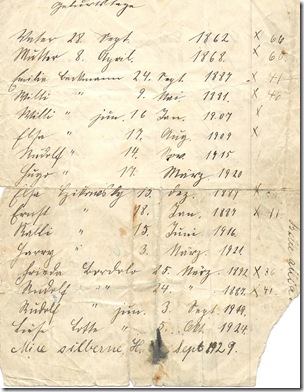 Geburtstage
Vater 28. Sept. 1862 x 66
Mutter 8. April. 1868. x 60
Emilie Beckmann 24. Sept 1887 x 41
Willi " 9. Mai 1881. x 46
Willi " jun. 16 Jan. 1907 x
Elsa " 17. Aug. 1909 x
Rudolf " 14. Nov. 1915
Hugo " 17. März 1920
Elsa 15. Dez.
Ernst " 18. Jan. 1887 x 41
Kalli " 15. Juni 1916.
Harry " 3. März. 1921
Frieda Bordolo 25. März. 1892 x 36
Rudolf " 24. " 1887. x 41.
Rudolf " jun. 3. Sept. 1919.
Luise Lotte " 5. Okt. 1924.
silberne, H. Sept 1929.